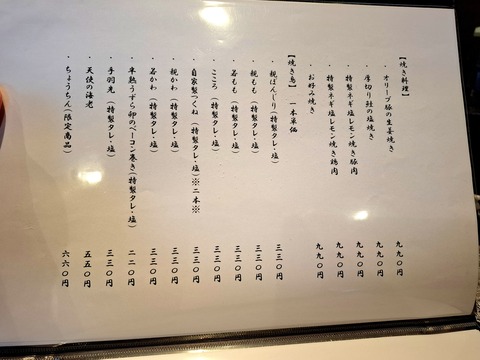 【焼き料理】
・オリーブ豚の生姜焼き 九九〇円
・厚切り鮭の塩焼き 九九〇円
・特製ネギ塩レモン焼き豚肉 九九〇円
・特製ネギ塩レモン焼き鶏肉 九九〇円
・お好み焼き 九九〇円
【焼き鳥】 一本単価
・親ぼんじり(特製タレ・塩) 三三〇円
・親もも(特製タレ・塩) 三三〇円
・若もも(特製タレ・塩) 三三〇円
・こころ(特製タレ・塩) 三三〇円
・自家製つくね(特製タレ・塩)※二本※ 三三〇円
・親かわ(特製タレ・塩) 三三〇円
・若かわ(特製タレ・塩) 三三〇円
・半熟うずら卵のベーコン巻き(特製タレ・塩) 二二〇円
・手羽先(特製タレ・塩) 三三〇円
・天使の海老 五五〇円
・ちょうちん(限定商品) 六六〇円